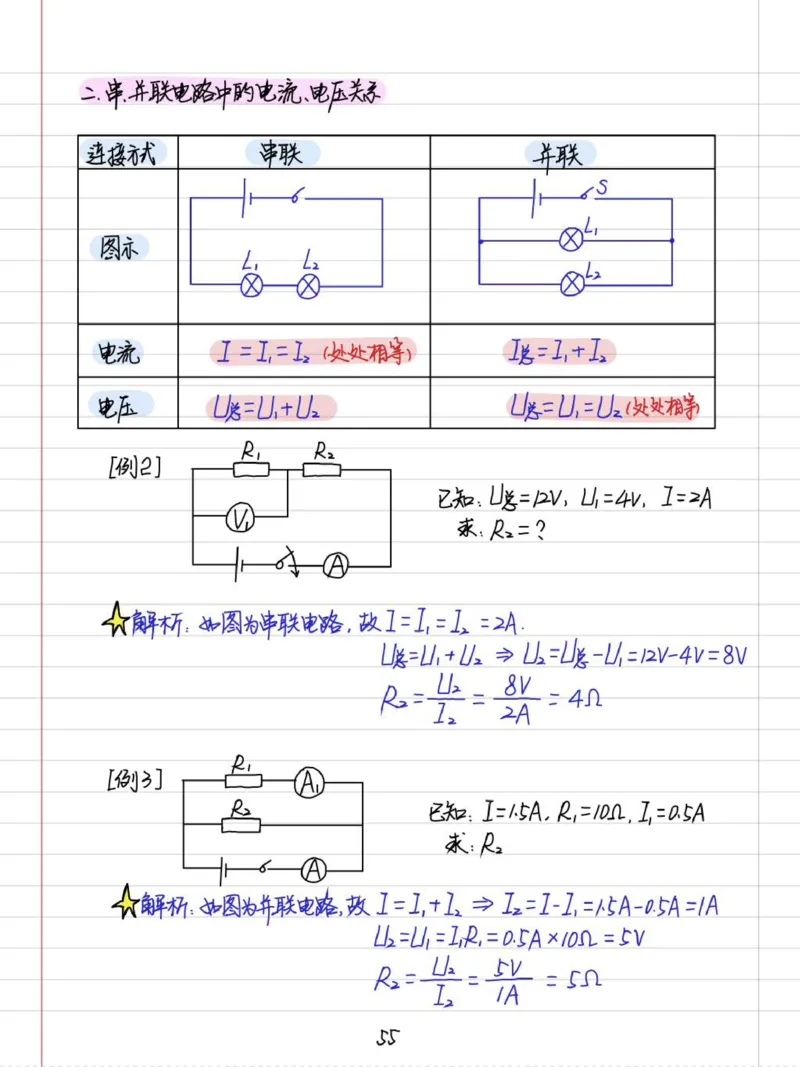 二.串、并联电路中的电流、电压关系
连接方式 串联 并联
图示
S
L₁
L₁ L₂
L₂
电流 I=I₁=I₂(处处相等) I总=I₁+I₂
电压 U总=U₁+U₂ U总=U₁=U₂(处处相等)
[例2]
R₁ R₂
V₁
A
已知:U总=12V, U₁=4V, I=2A
求:R₂=?
解析:如图为串联电路,故I=I₁=I₂=2A.
U总=U₁+U₂⇒U₂=U总-U₁=12V-4V=8V
R₂=U₂/I₂=8V/2A=4Ω
[例3]
R₁ A₁
R₂
A
已知:I=1.5A, R₁=10Ω, I₁=0.5A
求:R₂
解析:如图为并联电路,故I=I₁+I₂⇒I₂=I-I₁=1.5A-0.5A=1A
U₂=U₁=I₁R₁=0.5A×10Ω=5V
R₂=U₂/I₂=5V/1A=5Ω
55